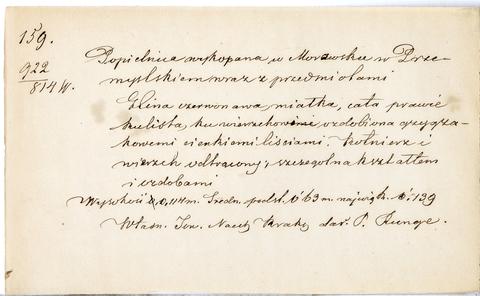 159.
922
814 W.
Popielnica wykopana w Morawsku w Prze-
myślskiem wraz z przedmiotami
Glina czerwonawa miałka, cała prawie
kulista, ku wierzchowi ozdobiona
kowemi cienkiemi liściami. Kołnierz i
wierzch odtrącony, szczególna kształtem
i ozdobami
Wysokość 0,114 m. Średn. podst. 0.63 m. najwięk. 0.139
Własn. Tow. Nauk Krak. dar. P. Runge.